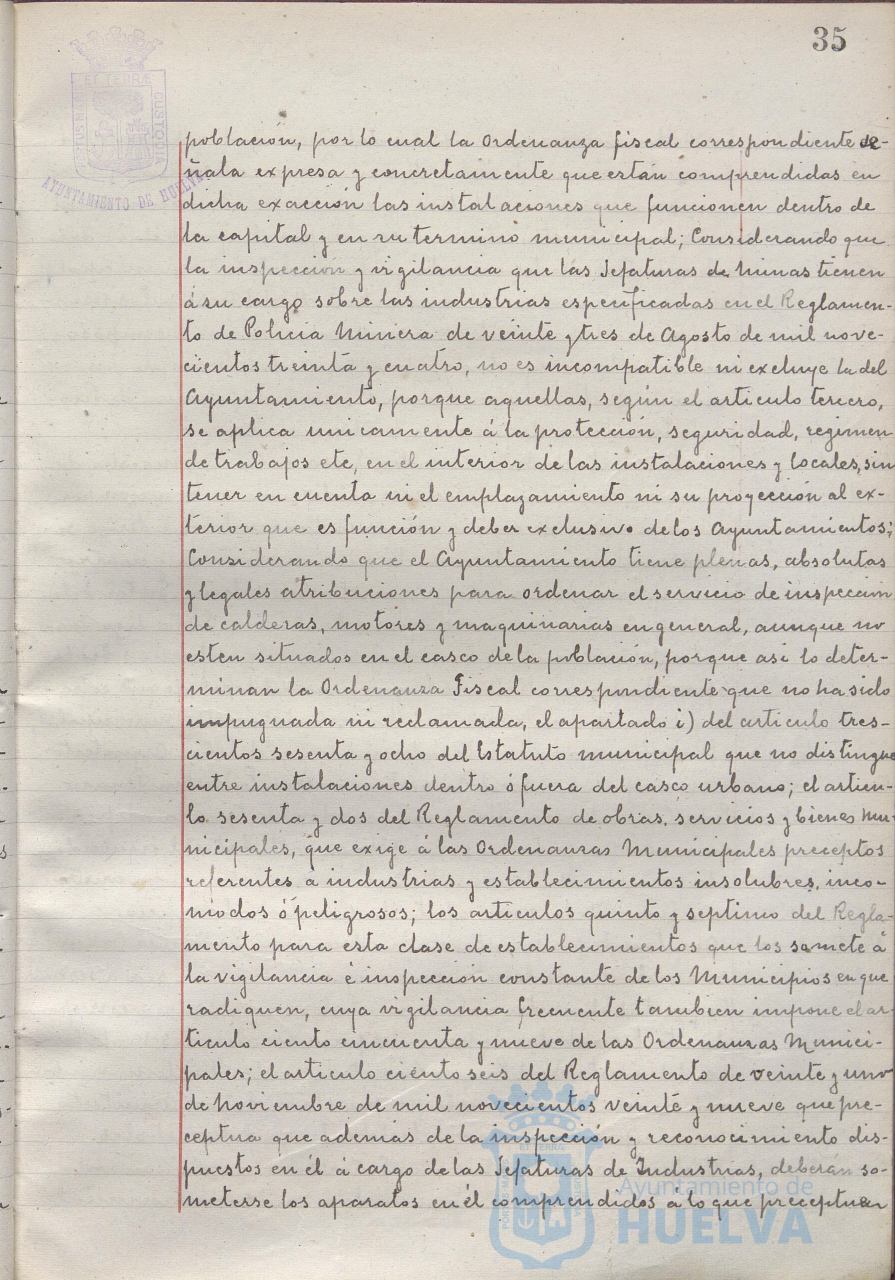 35
ET TERRÆ
CUSTODIA
AYUNTAMIENTO DE HUELVA
población, por lo cual la Ordenanza fiscal correspondiente se-
ñala expresa y concretamente que están comprendidas en
dicha exacción las instalaciones que funcionen dentro de
la capital y en su termino municipal; Considerando que
la inspeccion y vigilancia que las Jefaturas de Minas tienen
á su cargo sobre las industrias espeificadas en el Reglamen-
to de Policia Minera de veinte y tres de Agosto de mil nove-
cientos treinta y cuatro, no es incompatible ni excluye la del
Ayuntamiento, porque aquellas, según el articulo tercero,
se aplica unicamente á la protección, seguridad, regimen
de trabajos etc, en el interior de las instalaciones y locales, sin
tener en cuenta ni el emplazamiento ni su proyección al ex-
terior que es función y deber exclusivo de los Ayuntamientos;
Considerando que el Ayuntamiento tiene plenas, absolutas
y legales atribuciones para ordenar el servicio de inspeccion
de calderas, motores y maquinarias en general, aunque no
esten situados en el casco de la población, porque asi lo deter-
minan la Ordenanza Fiscal correspondiente que no ha sido
impugnada ni reclamada, el apartado i) del articulo tres-
cientos sesenta y ocho del Estatuto municipal que no distingue
entre instalaciones dentro ó fuera del casco urbano; el articu-
lo sesenta y dos del Reglamento de obras, servicios y bienes Mu-
nicipales, que exige á las Ordenanzas Municipales preceptos
referentes á industrias y establecimientos insolubres, inco-
modos ó peligrosos; los articulos quinto y septimo del Regla-
mento para esta clase de establecimientos que los somete á
la vigilancia é inspección constante de los Municipios en que
radiquen, cuya vigilancia frecuente tambien impone el ar-
ticulo ciento cincuenta y nueve de las Ordenanzas Munici-
pales; el articulo ciento seis del Reglamento de veinte y uno
de Noviembre de mil novecientos veinte y nueve que pre-
ceptua que además de la inspección y reconocimiento dis-
puestos en él á cargo de las Jefaturas de Industrias, deberán so-
meterse los aparatos en él comprendidos á lo que preceptuan
Ayuntamiento de
HUELVA